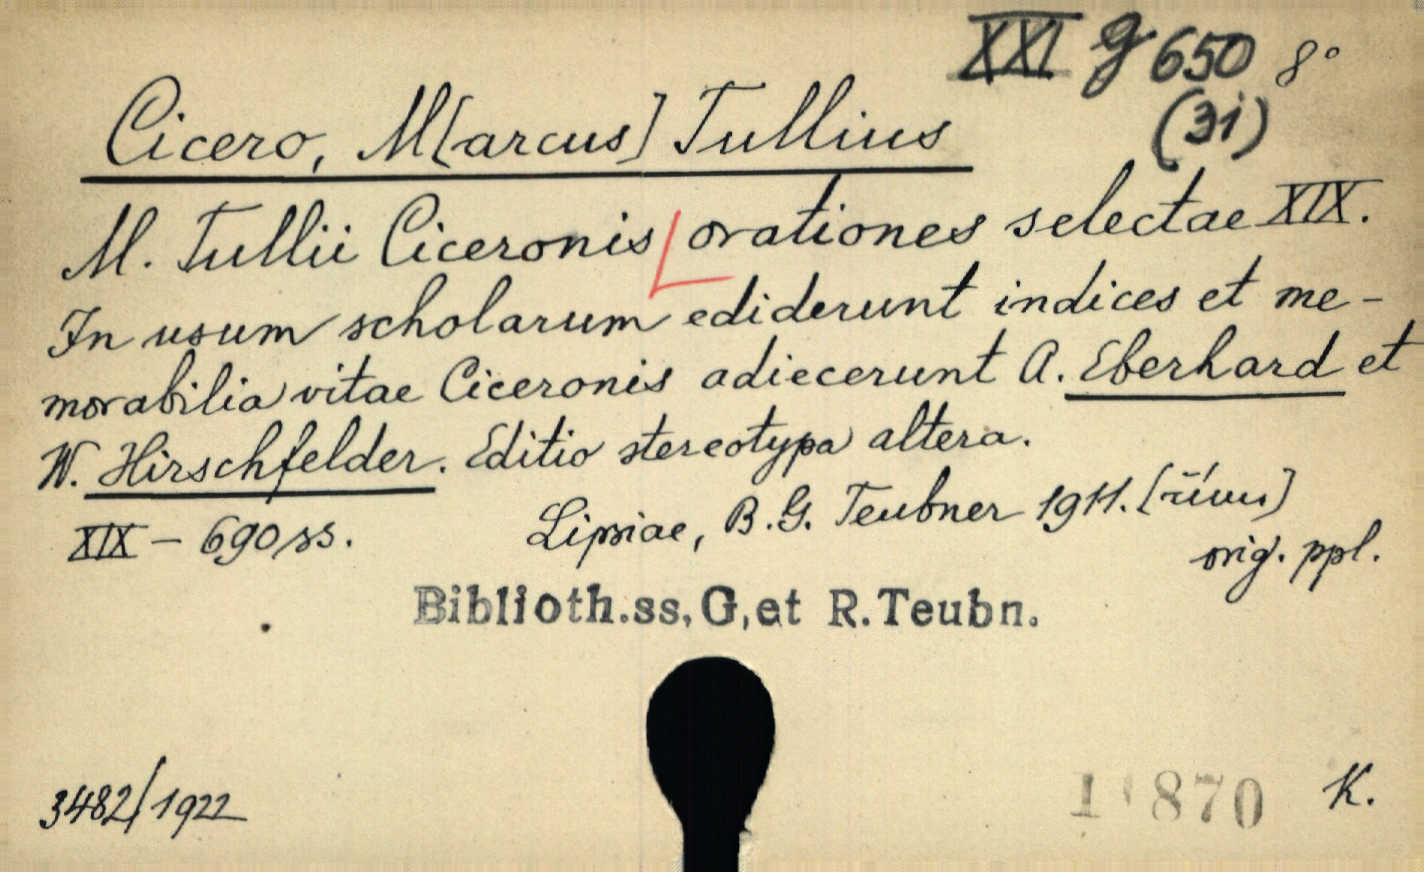 XXI g 650 8°
(31)
Cicero, M[arcus] Tullius
M. Tullii Ciceronis orationes selectae XIX.
In usum scholarum ediderunt indices et me-
morabilia vitae Ciceronis adiecerunt A. Eberhard et
W. Hirschfelder. Editio stereotypa altera.
Lipsiae, B. G. Teubner 1911.
XIX - 690 ss.
orig. ppl.
Biblioth.ss,G,et R.Teubn.
3482/1922
1 870 K.